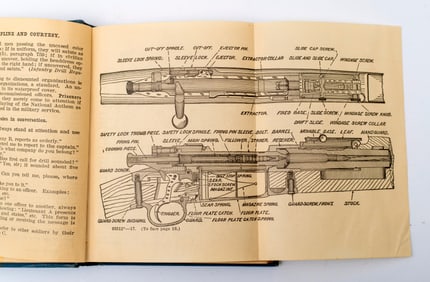 PLINE AND COURTESY.
men passing the uncased color
if in uniform, they will salute as
paragraph 759) if in civilian
uncovered, holding the headdress op-
right hand; if uncovered, they
salute." (Infantry Drill Regu-
to dismounted organizations is
organization a standard. An un-
its waterproof cover.
noncommissioned officers. Prisoners
they merely come to attention if
playing of the National Anthem as
in the military service.
in conversation.
always stand at attention and use
reports as orderly."
me to report to the captain."
what company do you belong?"
first call for drill sounded?"
"No, sir; it sounded about five
Can you tell me, please, where
you to it."
Examples:
one officer to another, always
"Lieutenant A presents
and states," etc. This form is
or receiving the message is
refer to other soldiers by their
C.
CUT-OFF SPINDLE. CUT-OFF. EJECTOR PIN. SLIDE CAP SCREW.
SLEEVE LOCK SPRING. SLEEVE LOCK. EJECTOR. EXTRACTOR COLLAR. SLIDE AND SLIDE CAP. WINDAGE SCREW.
EXTRACTOR. FIXED BASE. SLIDE SCREW. WINDAGE SCREW KNOB.
DRIFT SLIDE. WINDAGE SCREW COLLAR.
SAFETY LOCK THUMB PIECE. SAFETY LOCK SPINDLE. FIRING PIN SLEEVE. BOLT. BARREL. MOVABLE BASE. LEAF. HAND GUARD.
FIRING PIN. SLEEVE. MAIN SPRING. FOLLOWER. STRIKER. RECEIVER.
COCKING PIECE.
GUARD SCREW
SEAR.
MAGAZINE.
SEAR SPRING. MAGAZINE SPRING. GUARD SCREW, FRONT. STOCK.
GUARD SCREW BUSHING. TRIGGER. FLOOR PLATE CATCH. FLOOR PLATE.
GUARD. FLOOR PLATE CATCH SPRING.
(To face page 16.)